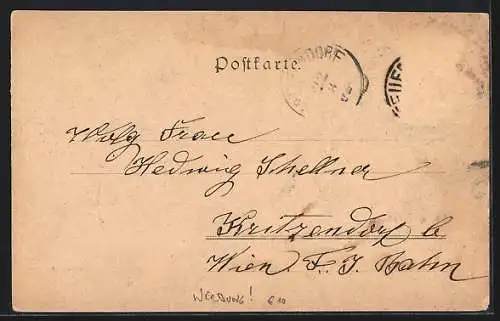 Postkarte.
NDORF
Wolg Frau
Hedwig Schellner
Kritzendorf b
Wien F. J. Bahn
WERBUNG! 610